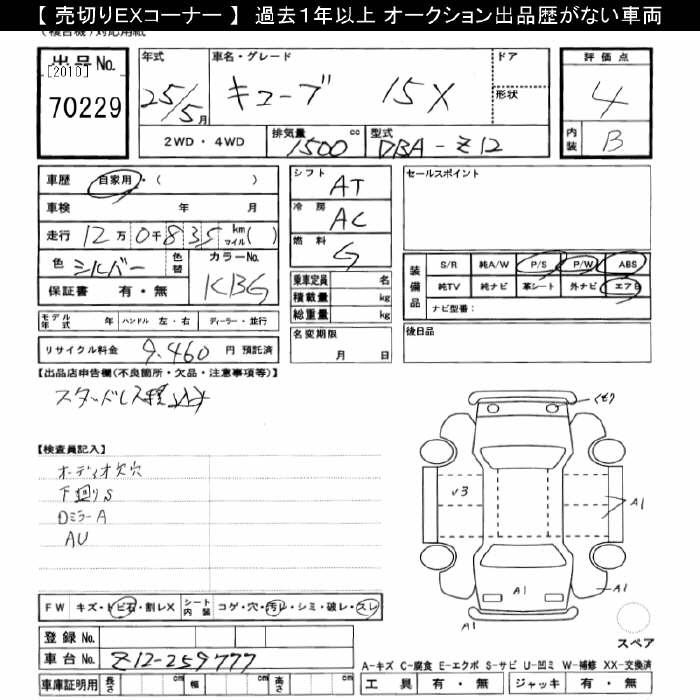 【 売切りEXコーナー 】 過去１年以上 オークション出品歴がない車両
(複合機)対応用紙
出品No.
[2010]
70229
年式
25/5月
車名・グレード
キューブ 15X
ドア
形状
評価点
4
内装
B
2WD・4WD
排気量
1500
cc
型式
DBA-Z12
車歴
自家用・( )
車検 年 月
走行 12万0千835 kmマイル( )
色 シルバー
色替
カラーNo.
KBG
保証書 有・無
シフト
AT
冷房
AC
燃料
G
セールスポイント
装備品
S/R 純A/W P/S P/W ABS
純TV 純ナビ 革シート 外ナビ エアB
ナビ型番：
乗車定員 名
積載量 kg
総重量 kg
モデル年式 年 ハンドル 左・右 ディーラー・並行
リサイクル料金 9,460 円 預託済
名変期限
月 日
後日品
【出品店申告欄(不良箇所・欠品・注意事項等)】
スタッドレス積込
【検査員記入】
オーディオ欠穴
下回りS
DミラーA
AU
V3
A1
A1
A1
A1
スペア
FW キズ・トビ石・割レX シート内装 コゲ・穴・汚レ・シミ・破レ・スレ
登録No.
車台No. Z12-259777
車庫証明用 長さ cm 幅 cm 高さ cm
A-キズ C-腐食 E-エクボ S-サビ U-凹ミ W-補修 XX-交換済
工具 有・無 ジャッキ 有・無